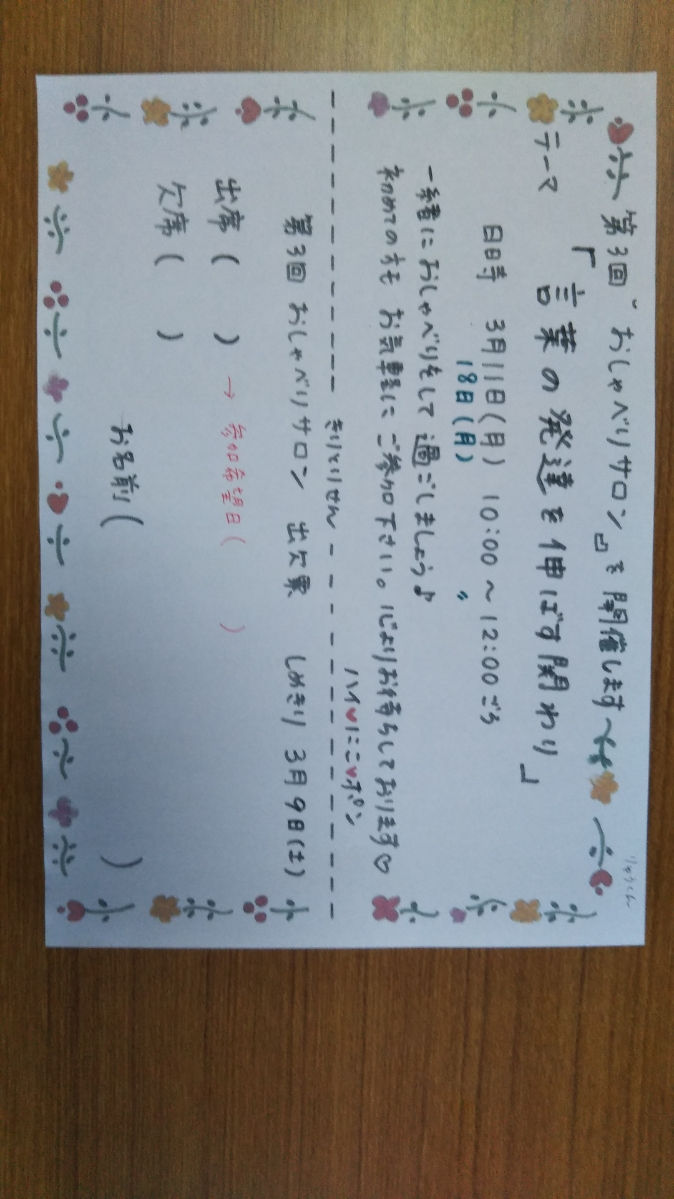 第3回『おしゃべりサロン』を開催します
テーマ
「言葉の発達を伸ばす関わり」
日時 3月11日(月) 10:00〜12:00ごろ
18日(月) 〃
一緒におしゃべりをして過ごしましょう♪
初めての方も お気軽に ご参加下さい。心よりお待ちしております♡
ハイ♥にこ♥ポン
きりとりせん
第3回 おしゃべりサロン 出欠票 しめきり 3月9日(土)
出席( ) → 参加希望日( )
欠席( )
お名前( )